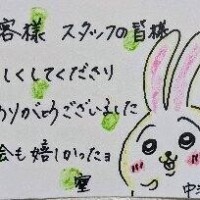 客様 スタッフの皆様
しくしてくださり
ありがとうございました
会も嬉しかったヨ